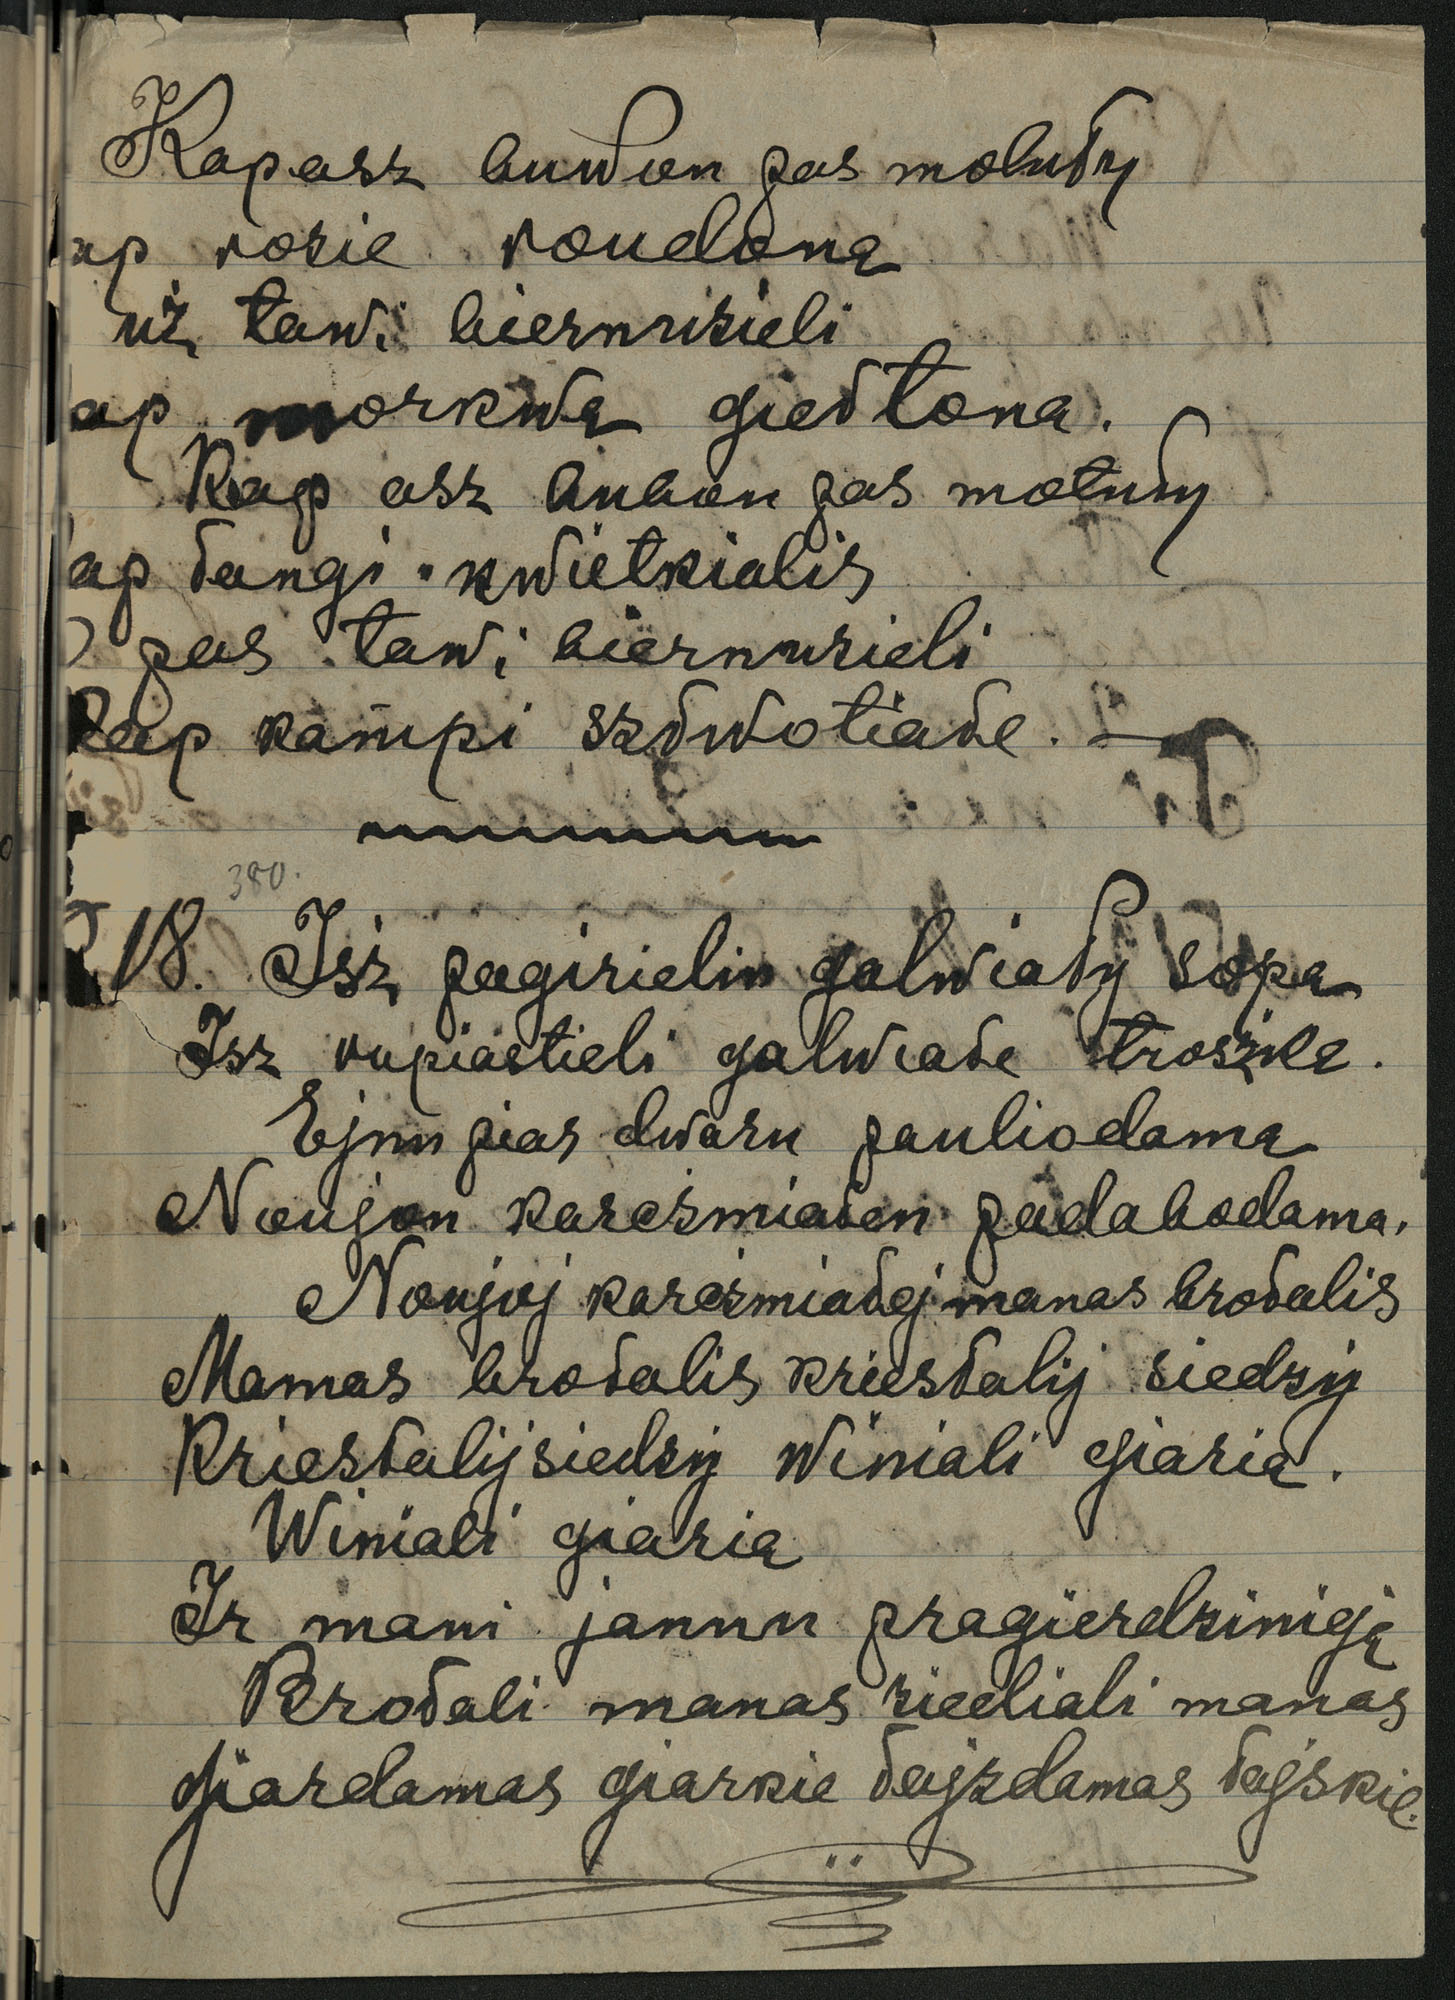 Kap asz buwon pas mołuły
ap rozie roudoną
už tawi biernuzieli
ap morkwą giełtoną.
Kap asz bubon pas motuły
ap łangi kwietkialis
O pas tawi biernuzieli
Kap kampi szłwotiałe.
380.
18. Isz pagirielin galwiały sopą
Isz rupiastieli galwiałe troszką.
Ejnu pias dwaru pauliodamą
Noujon karczmiałen padabodamą.
Noujoj karczmiałej manas brolalis
Manas brołalis kriesłalij siedzij
Kriesłalij siedzij winiali giarią.
Winiali giarią
Ir mani jaunu pragierdzinieją
Brołali manas ziediali manas
Giardamas giarkie łajzdamas łajskie.